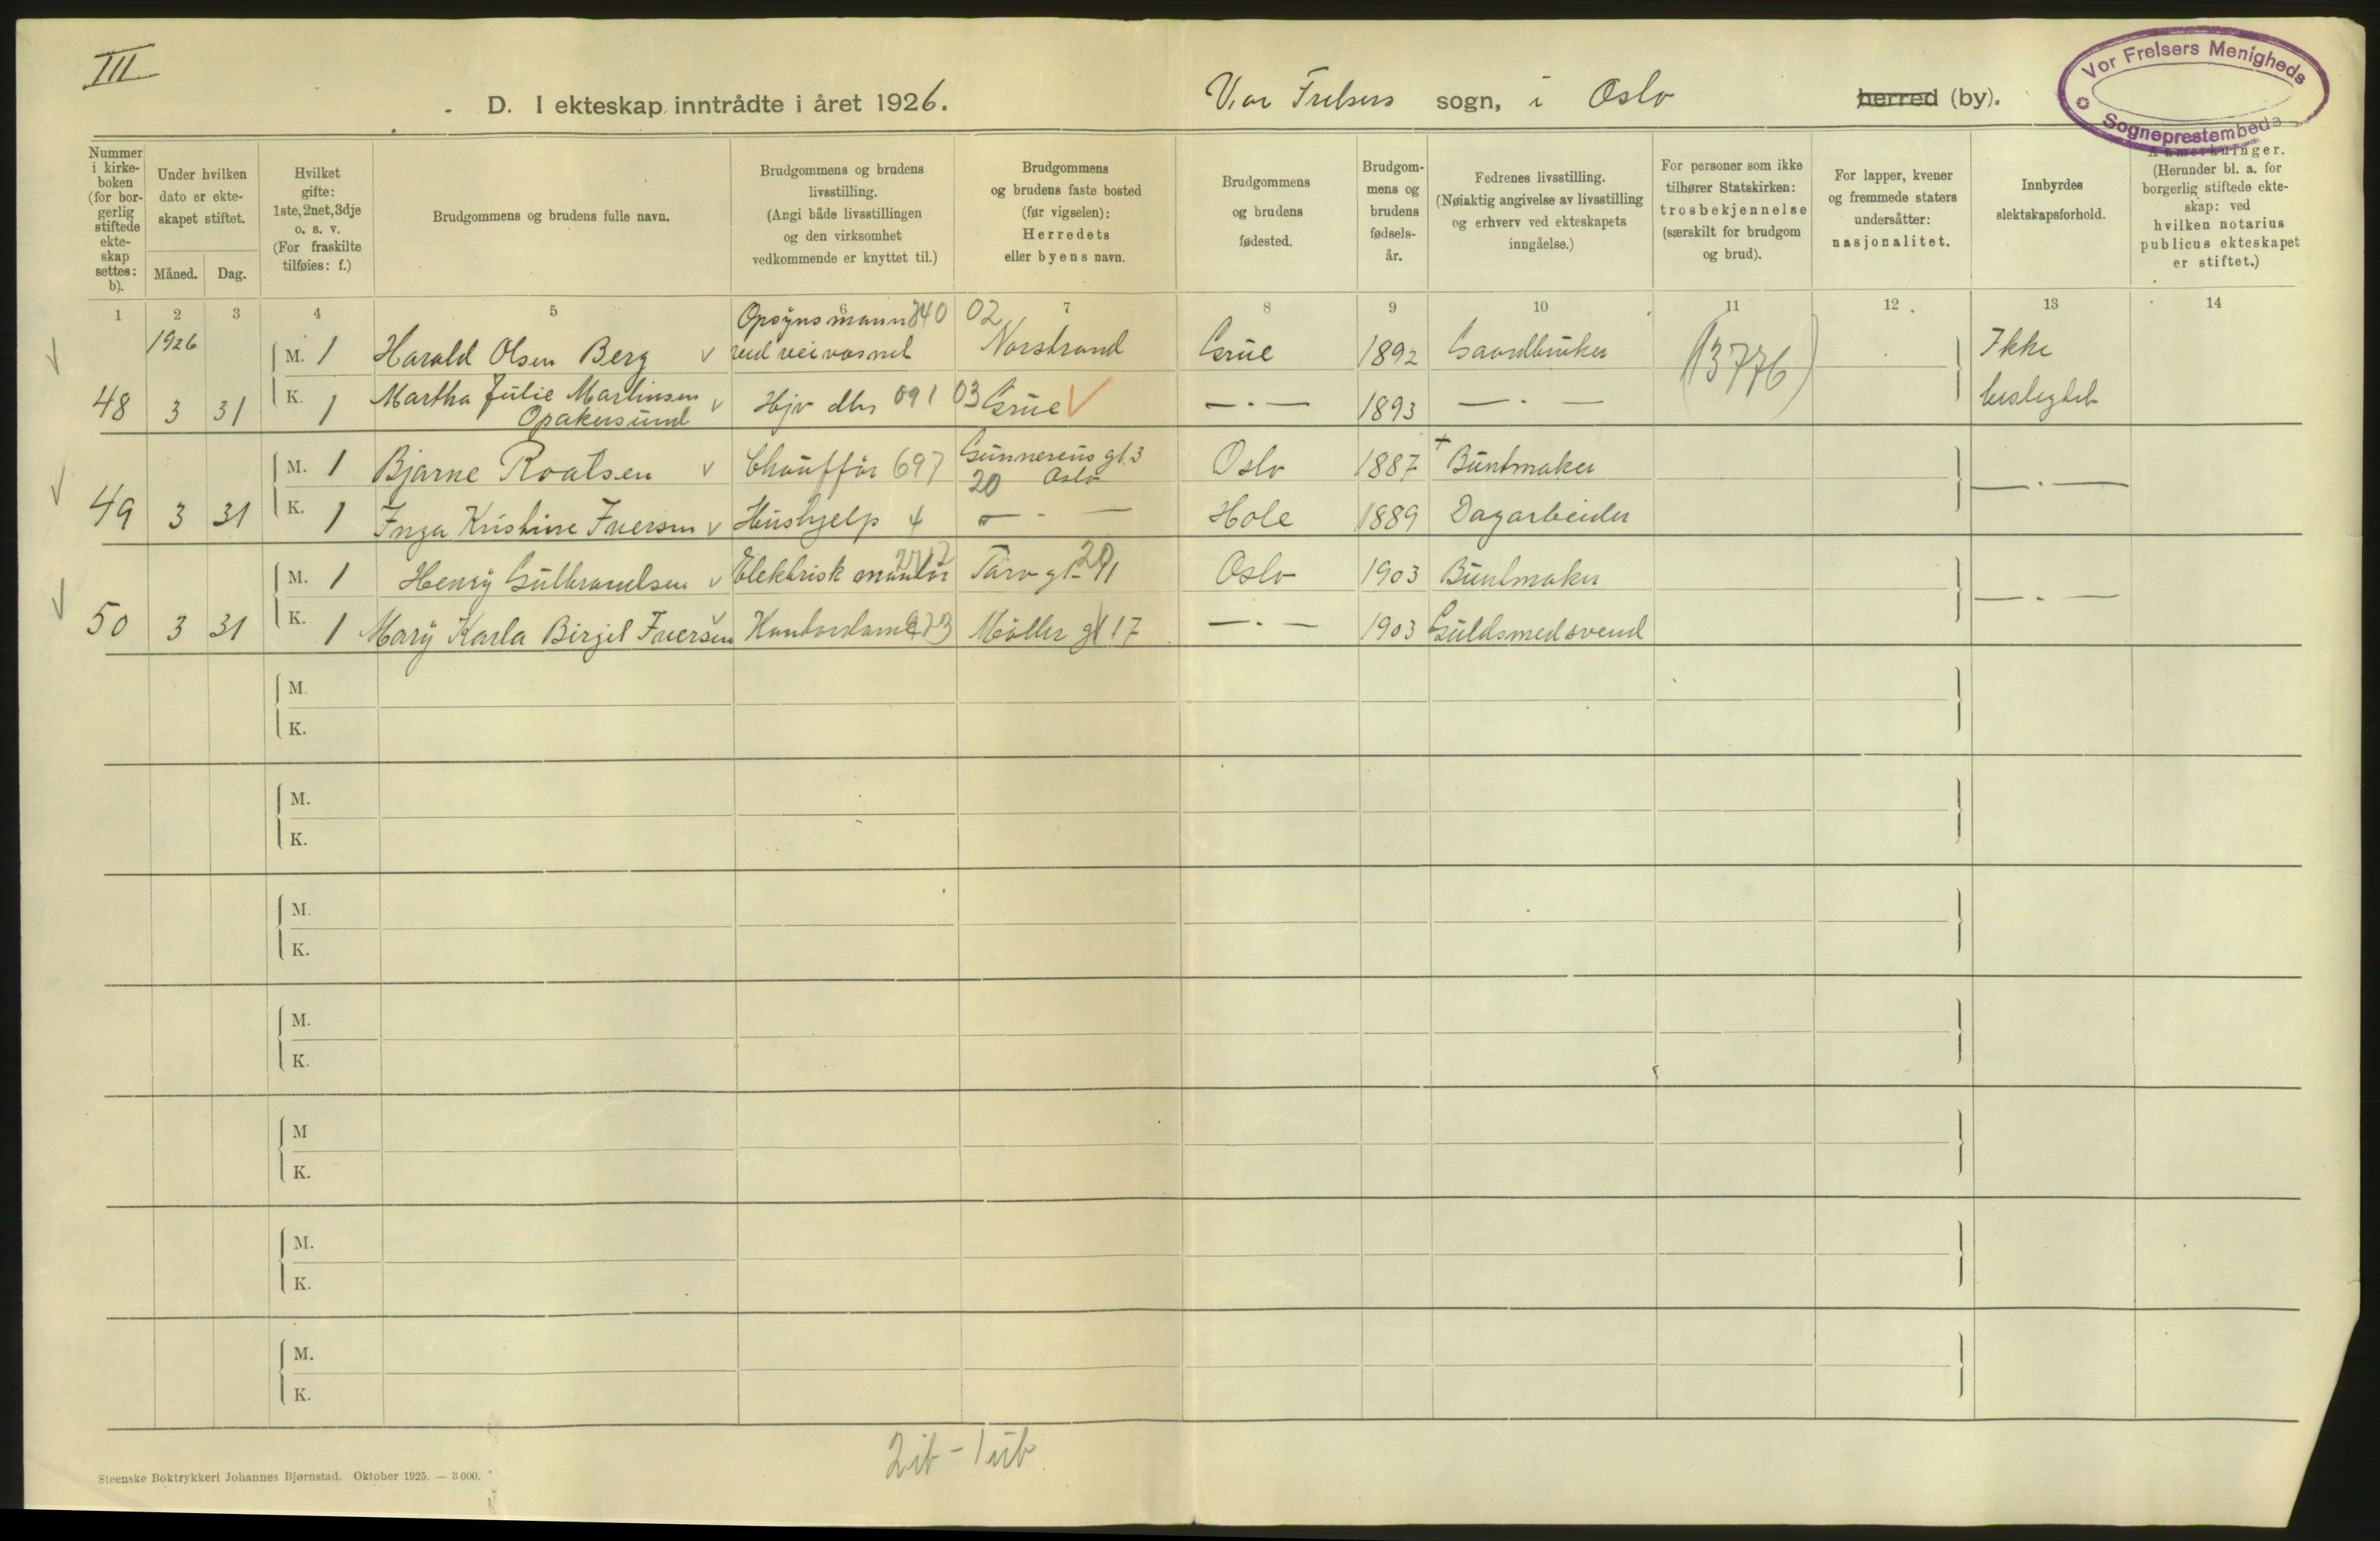 III
D. I ekteskap inntrådte i året 1926.
Vor Frelsers sogn, i Oslo herred (by).
Vor Frelsers Menigheds
Sogneprestembede
Nummer i kirke-boken (for bor-gerlig stiftede ekte-skap settes: b).
Under hvilken dato er ekte-skapet stiftet.
Måned. Dag.
Hvilket gifte: 1ste, 2net, 3dje o. s. v. (For fraskilte tilføies: f.)
Brudgommens og brudens fulle navn.
Brudgommens og brudens livsstilling. (Angi både livsstillingen og den virksomhet vedkommende er knyttet til.)
Brudgommens og brudens faste bosted (før vigselen): Herredets eller byens navn.
Brudgommens og brudens fødested.
Brudgom-mens og brudens fødsels-år.
Fedrenes livsstilling. (Nøiaktig angivelse av livsstilling og erhverv ved ekteskapets inngåelse.)
For personer som ikke tilhører Statskirken: trosbekjennelse (særskilt for brudgom og brud).
For lapper, kvener og fremmede staters undersåtter: nasjonalitet.
Innbyrdes slektskapsforhold.
Anmerkninger. (Herunder bl. a. for borgerlig stiftede ekte-skap: ved hvilken notarius publicus ekteskapet er stiftet.)
1 2 3 4 5 6 7 8 9 10 11 12 13 14
1926
Opsynsmann 840 02
M. 1 Harald Olsen Berg v ved veivæsnet Norstrand Grue 1892 Gaardbruker (13776) Ikke
48 3 31 K. 1 Martha Julie Martinsen Opakersund v Hjv dtr 091 03 Grue — . — 1893 — . — beslegtet
M. 1 Bjarne Roalsen v Chauffør 697 Gunnerius gt. 3 Oslo 20 Oslo 1887 + Buntmaker
49 3 31 K. 1 Inga Kristine Iversen v Hushjelp 4 — - — Hole 1889 Dagarbeider — . —
M. 1 Henry Gulbrandsen v Elektrisk montør Oslo 1903 Buntmaker
50 3 31 K. 1 Mary Karla Birgit Iversen Kontordame 273 Møller gt 17 — . — 1903 Guldsmedsvend — . —
M.
K.
M.
K.
M.
K.
M.
K.
M
K.
M.
K.
M.
K.
2 ib - 1 ub
Steenske Boktrykkeri Johannes Bjørnstad. Oktober 1925. — 3 000.